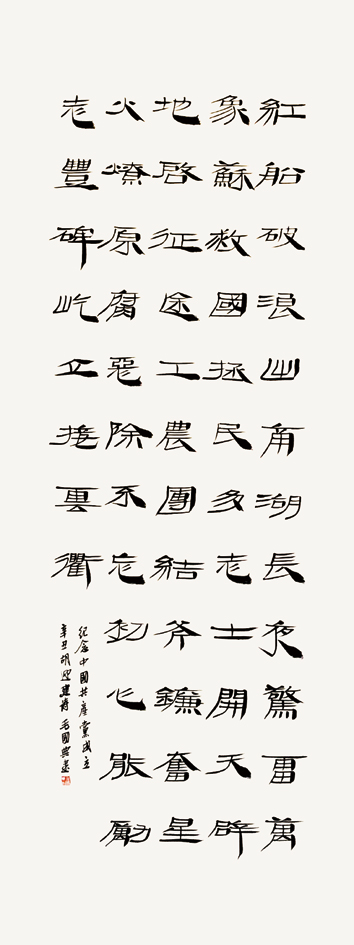 紅船破浪出南湖長夜驚雷萬
象蘇救國拯民多志士開天辟
地啓征途工農團結斧鐮奮星
火燎原腐惡除不忘初心能勵
老豐碑屹立接雲衢
紀念中國共產黨成立
辛丑胡迎建詩毛國典書